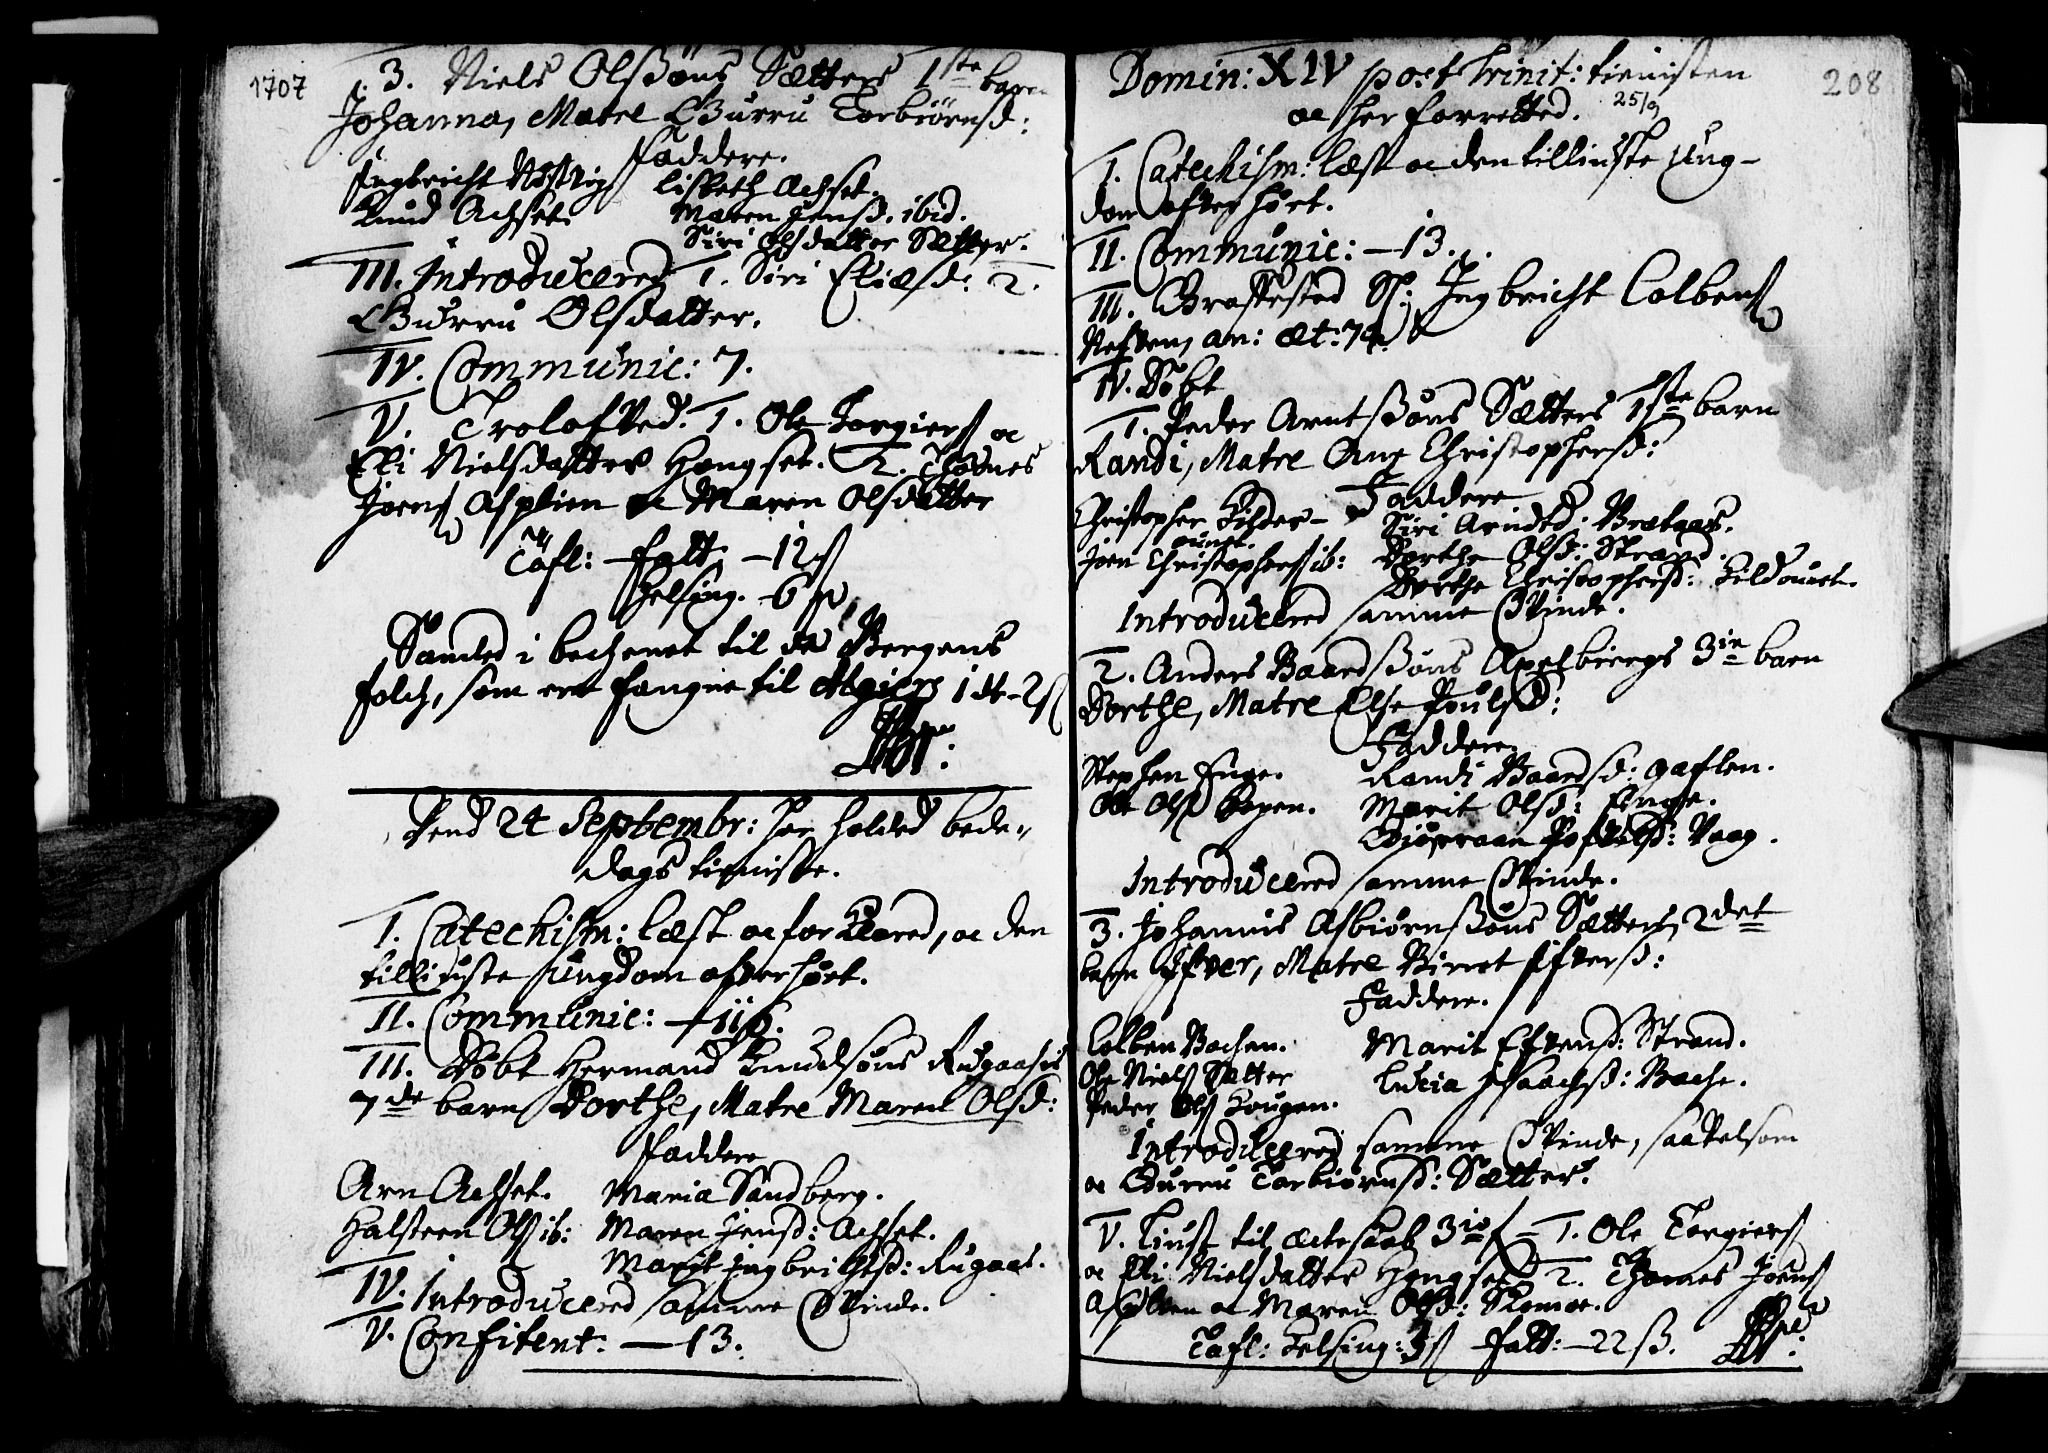 1707
3. Niels Olsßøns Sætters 1ste barn
Johanna, Matre Gurru Torbiørnsd:
Faddere.
Ingbricht Lisbeth Achset.
Knud Achset. Maren Jensd. ibid.
Siri Olsdatter Sætter.
III. Introducered 1. Siri Eliæsd: 2.
Gurru Olsdatter.
IV. Communic: 7.
V. Trolofved. 1. Ole Torgiers oc
Eli Nielsdatter Hongset. 2. Thomes
Joens Asplien oc Maren Olsdatter
Tafl: falt: -12 ß
helsing. -6 ß
Samled i bechenet til de Bergens
folch, som ere fangne til Algiers 1 -2 ß
Dend 24 Septembr: har holded bede-
dags tieniste.
I. Catechism: læst oc forklared, oc den
tilliuste ungdom ofverhørt.
II. Communic: -116.
III. Døbt Hermand Knudsøns Rugaases
7de barn Dorthe, Matre Maren Olsd:
Faddere
Arn Achset. Maria Sandberg.
Halsteen Ols ib: Maren Jensd: Achset.
Marit Ingbrichtsd: Rugaas.
IV. Introducered samme Qvinde.
V. Confitent: -13.
208
Domin: XIV post Trinit: tienisten
oc her forretted. 25/9
I. Catechism: læst oc den tilliuste ung-
dom ofverhørt.
II. Communic: -13.
III. Graffested Sl: Ingbricht Colbens
an: æt:
IV. Døbt
1. Peder Arntßøns Sætters 1ste barn
Randi, Matre Ane Christophersd:
Faddere
Christopher Kilder- Siri Arndtd: Brataas.
ounet.
Joen Christophers ib: Dorthe Olsd: Strand.
Dorthe Christophersd: Kildounet.
Introducered samme Qvinde.
2. Anders Baardßøns Apelbiergs 3ie barn
Dorthe, Matre Else Poulsd:
Faddere
Stephen Enge. Randi Baardsd: Gaflen.
Ole Ols Hogen. Marit Olsd: Enge.
Vaag.
Introducered samme Qvinde.
3. Johannis Asbiørnßøns Sætters 2det
barn Ifver, Matre Birret Ifversd:
Faddere.
Colben Bachen. Marit Efvensd: Strand.
Ole Niels Sætter Lucia Isaachsd: Bache.
Peder Ols Hougen.
Introducered samme Qvinde, saavelsom
oc Gurru Torbiørnsd: Sætter.
V. Liust til ægteskab 3ie 1. Ole Torgiers
oc Eli Nielsdatter Hongset 2. Thomes Joens
Asplien oc Maren Olsd:
Tafl: helsing: 3 ß falt: -22 ß.